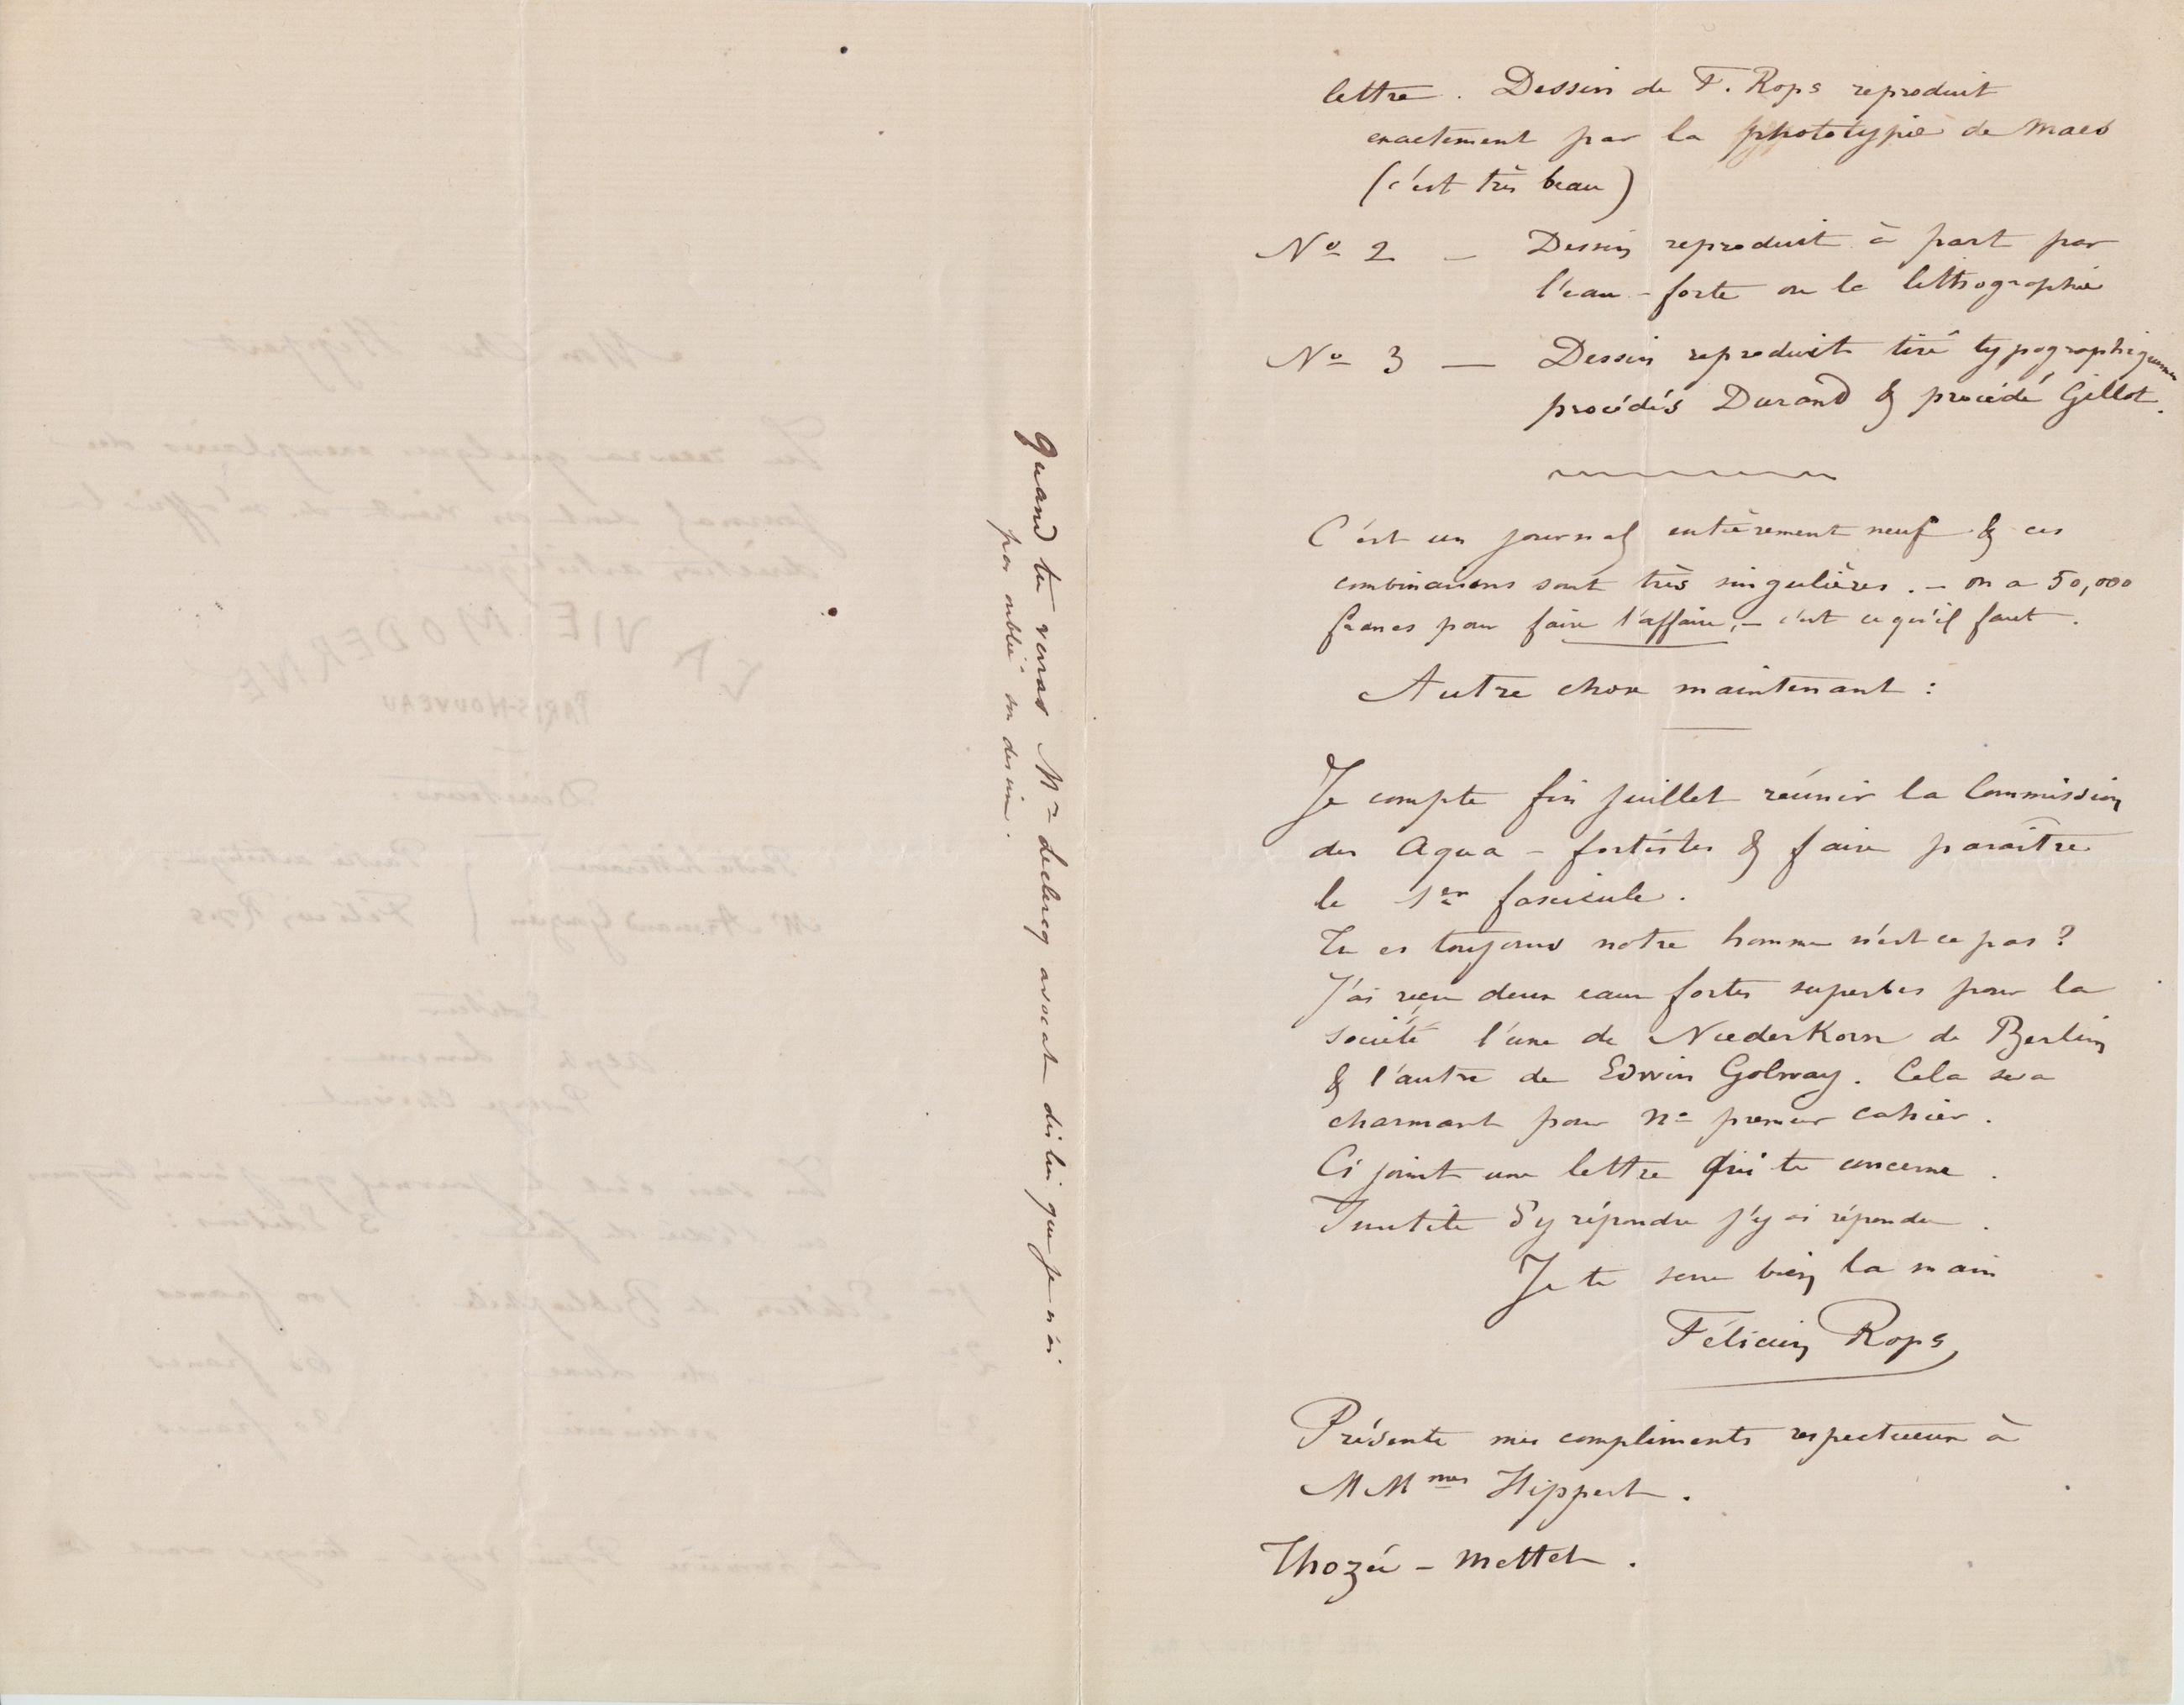 lettre. Dessin de F. Rops reproduit
exactement par la phototypie de Maes
(c'est très beau)
Nº 2 — Dessin reproduit à part par
l'eau-forte ou la lithographie
Nº 3 — Dessin reproduit tiré typographiquement
procédés Durand & procédé Gillot.
C'est un journal entièrement neuf & ces
combinaisons sont très singulières. — on a 50,000
francs pour faire l'affaire, — c'est ce qu'il faut.
Autre chose maintenant :
Je compte fin juillet réunir la Commission
des Aqua-fortistes & faire paraître
le 1er fascicule.
Tu es toujours notre homme n'est ce pas ?
J'ai reçu deux eaux fortes superbes pour la
société l'une de Niederkorn de Berlin
& l'autre de Edwin Golway. Cela sera
charmant pour ne premier cahier.
Ci joint une lettre qui te concerne.
Inutile d'y répondre j'y ai répondu.
Je te serre bien la main
Félicien Rops
Présente mes compliments respectueux à
MMmes Hippert.
Thozée - Mettet.
Quand tu verras Mr Leclercq avocat dis lui que je n'ai
pas oublié son dessin.